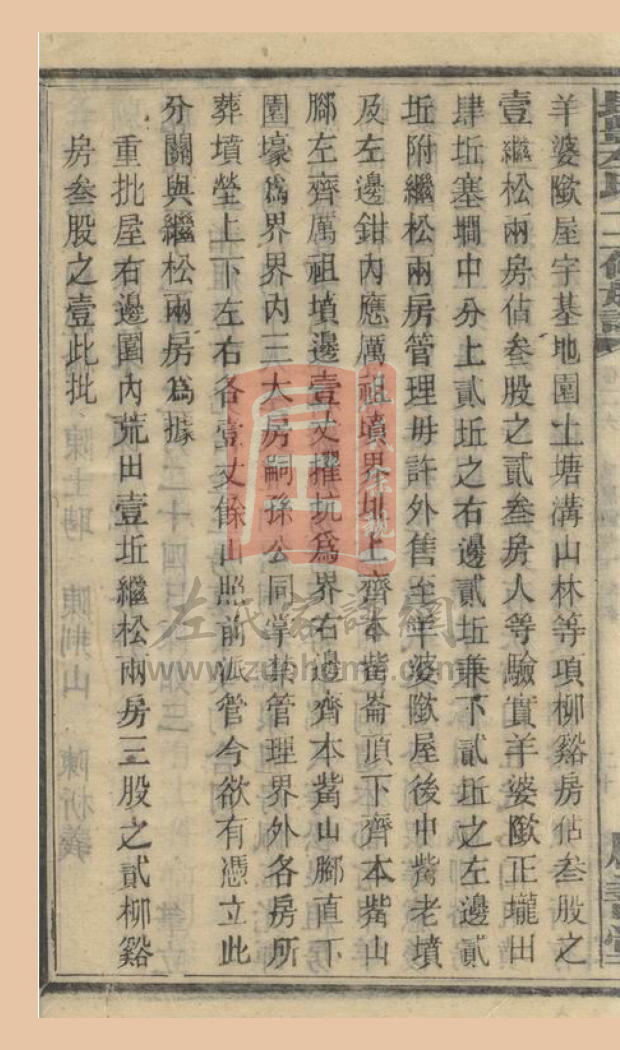 羊婆歐屋宇基地園土塘溝山林等項柳谿房佔叁股之
壹繼松兩房佔叁股之貳叁房人等驗實羊婆歐正壠田
肆坵塞壩中分上貳坵之右邊貳坵兼下貳坵之左邊貳
坵附繼松兩房管理毋許外售至羊婆歐屋後中嘴老墳
及左邊鉗內應厲祖墳界址上齊本嘴崙頂下齊本嘴山
腳左齊厲祖墳邊壹丈擢坑爲界右邊齊本嘴山腳直下
園壕爲界界內三大房嗣孫公同掌禁管理界外各房所
葬墳塋上下左右各壹丈餘山照前派管今欲有憑立此
分關與繼松兩房爲據
重批屋右邊園內荒田壹坵繼松兩房三股之貳柳谿
房叁股之壹此批
左氏家譜網
www.zuohome.com